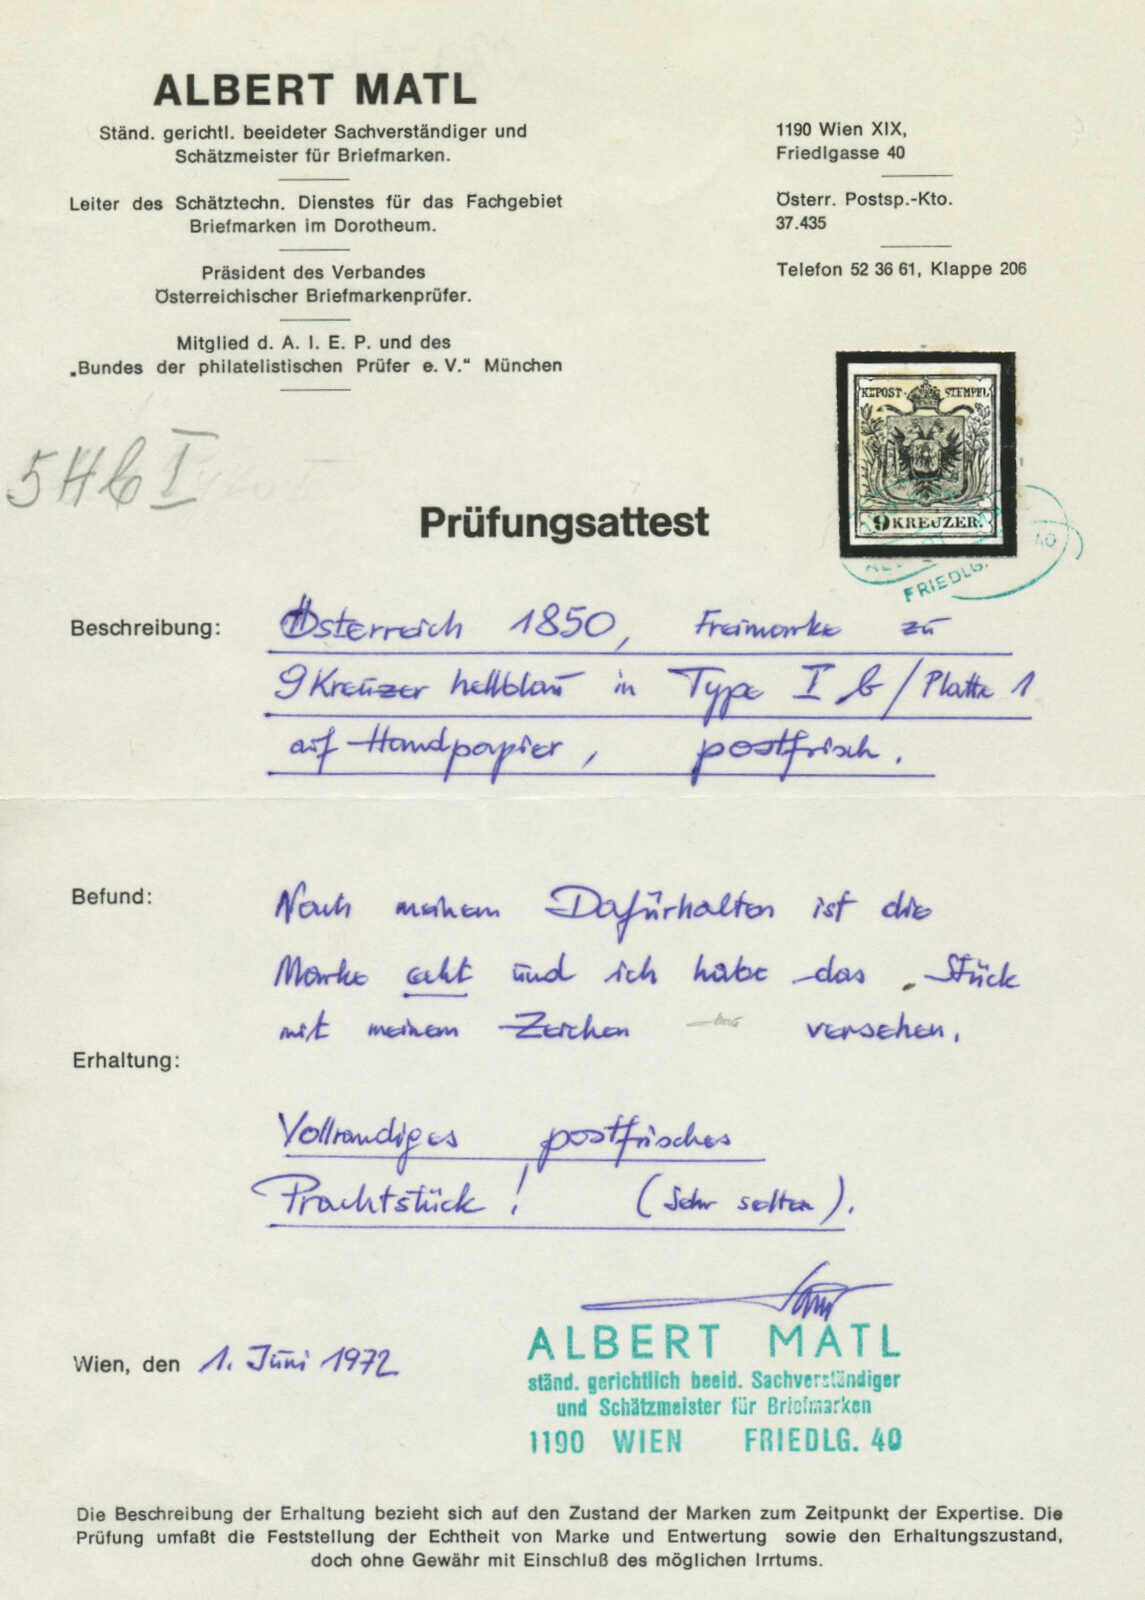 ALBERT MATL
Ständ. gerichtl. beeideter Sachverständiger und
Schätzmeister für Briefmarken.
Leiter des Schätztechn. Dienstes für das Fachgebiet
Briefmarken im Dorotheum.
Präsident des Verbandes
Österreichischer Briefmarkenprüfer.
Mitglied d. A. I. E. P. und des
„Bundes der philatelistischen Prüfer e. V.“ München
1190 Wien XIX,
Friedlgasse 40
Österr. Postsp.-Kto.
37.435
Telefon 52 36 61, Klappe 206
KKPOST-STEMPEL
9 KREUZER.
FRIEDLG. 40
5 H b I
Prüfungsattest
Beschreibung: Österreich 1850, Freimarke zu
9 Kreuzer hellblau in Type I b / Platte 1
auf Handpapier, postfrisch.
Befund: Nach meinem Dafürhalten ist die
Marke echt und ich habe das Stück
mit meinem Zeichen versehen.
Erhaltung:
Vollrandiges postfrisches
Prachtstück! (Sehr selten).
Wien, den 1. Juni 1972
ALBERT MATL
ständ. gerichtlich beeid. Sachverständiger
und Schätzmeister für Briefmarken
1190 WIEN FRIEDLG. 40
Die Beschreibung der Erhaltung bezieht sich auf den Zustand der Marken zum Zeitpunkt der Expertise. Die
Prüfung umfaßt die Feststellung der Echtheit von Marke und Entwertung sowie den Erhaltungszustand,
doch ohne Gewähr mit Einschluß des möglichen Irrtums.